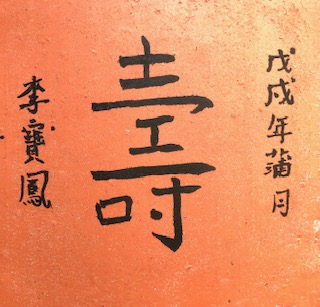 戊戌年蒲月
壽
李寶鳳